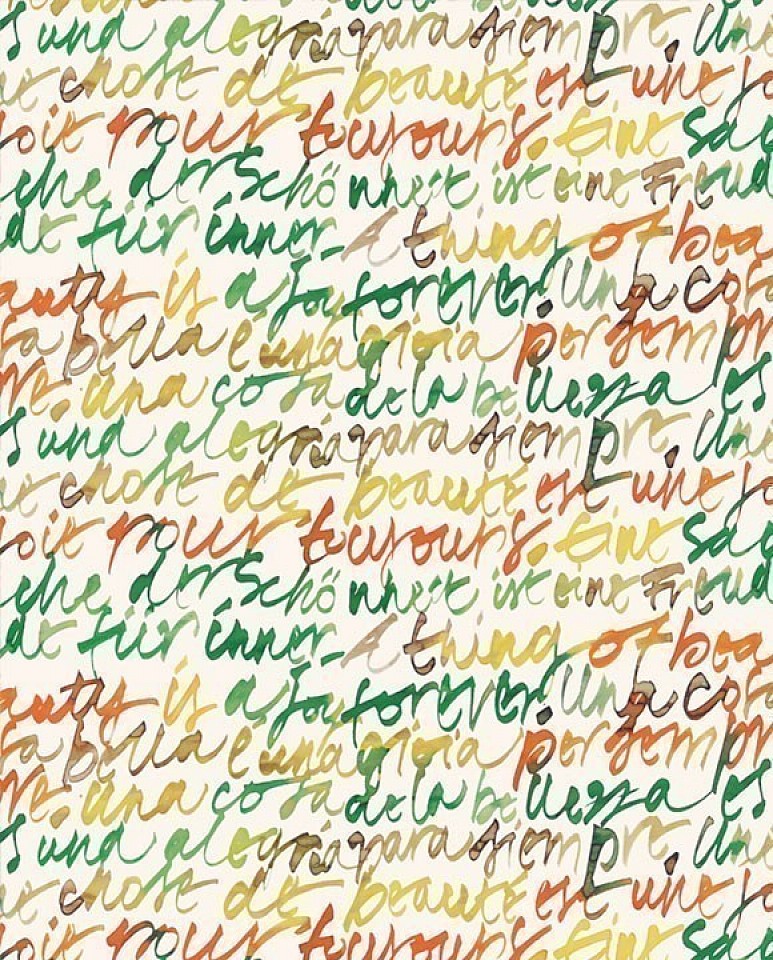 s una alegria para siempre. Une
chose de beauté est une jo
oie pour toujours. Eine Sac
che der Schönheit ist eine Freud
de für immer. A thing of bea
auty is a joy forever. Una cosa
sa bella è una gioia per sempr
re. Una cosa de la belleza es
s una alegria para siempre. Une
chose de beauté est une jo
oie pour toujours. Eine Sac
che der Schönheit ist eine Freud
de für immer. A thing of bea
auty is a joy forever. Una cosa
sa bella è una gioia per sempr
re. Una cosa de la belleza es
s una alegria para siempre. Une
chose de beauté est une jo
oie pour toujours. Eine Sac